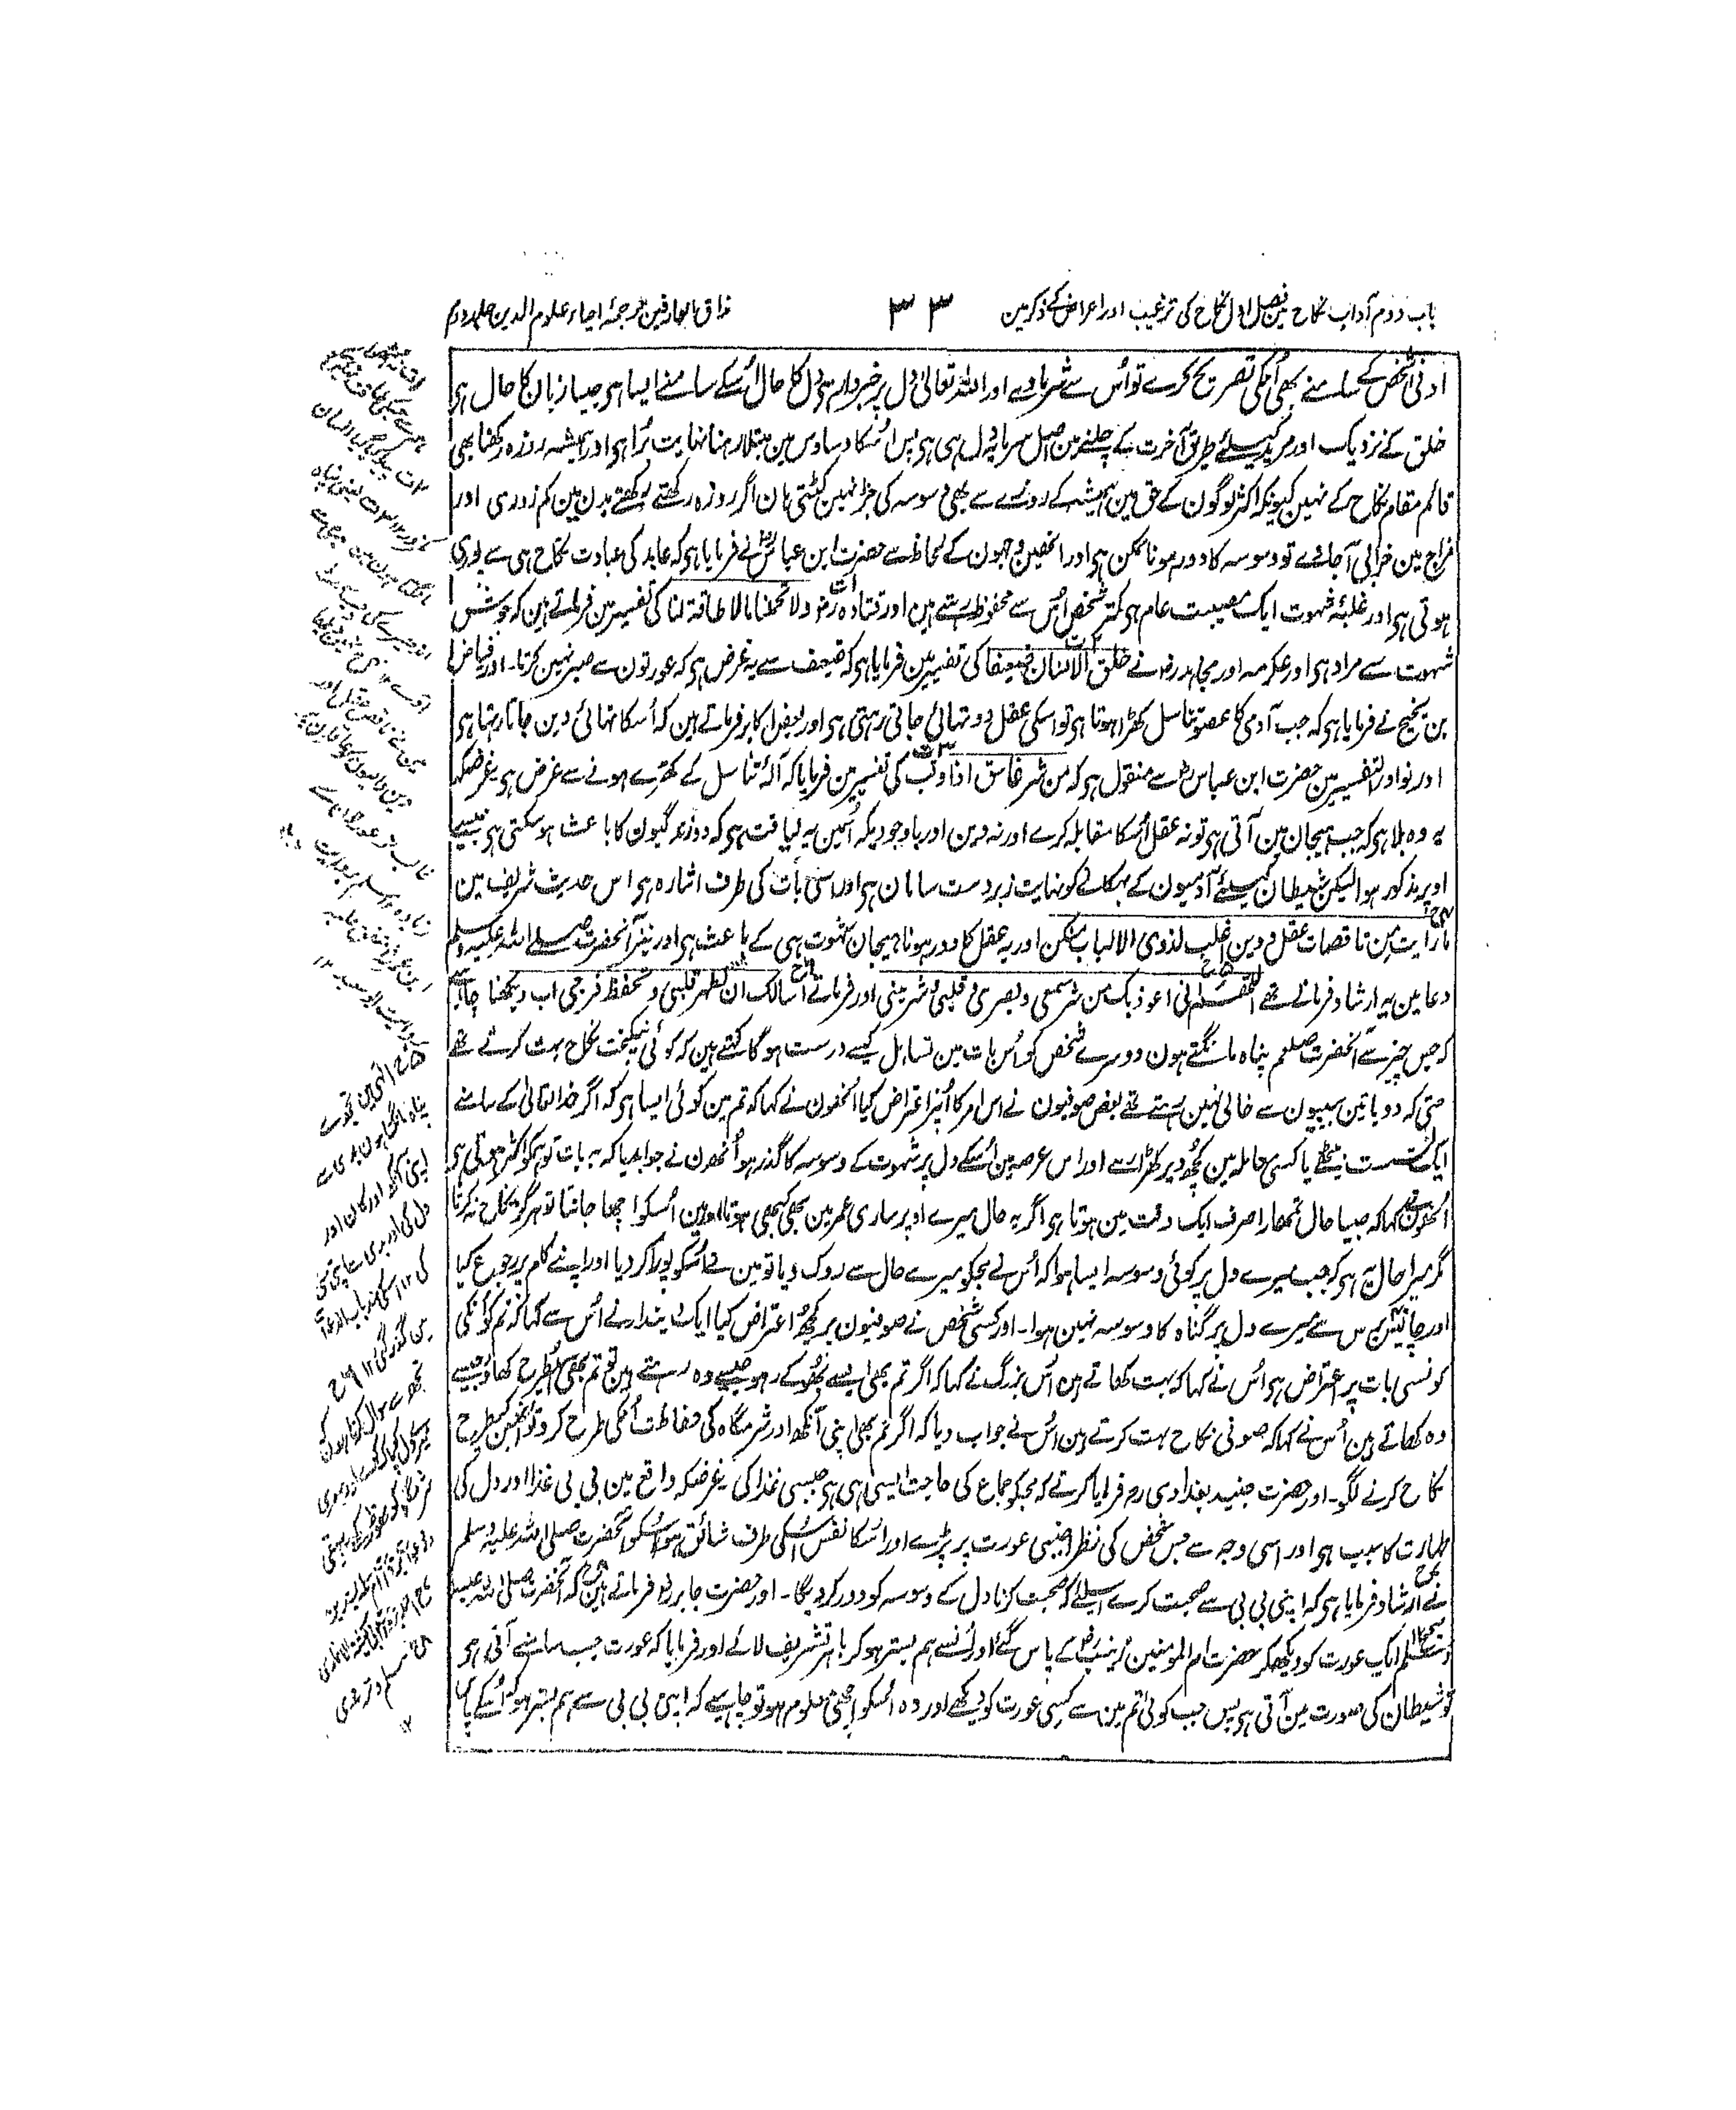 باب دوم آداب نکاح مین فصل اول نکاح کی ترغیب اور اعراض کے ذکر مین
۳۳
مذاق العارفین ترجمۂ احیاء علوم الدین جلد دوم
ادنیٰ شخص کے سامنے بھی اُنکی تصریح کرے تو اُس سے شرماوے اور اللہ تعالیٰ دل پر خبردار ہی دل کا حال اُسکے سامنے ایسا ہی جیسا زبان کا حال ہی
خلق کے نزدیک اور مرید کیلئے طریق آخرت کے چلنے مین اصل سرمایہ دل ہی ہی پس اُسکا وساوس مین مبتلا رہنا نہایت بُرا ہی اور ہمیشہ روزہ رکھنا بھی
قائم مقام نکاح کے نہین کیونکہ اکثر لوگون کے حق مین ہمیشہ کے روزے سے بھی وسوسہ کی جڑ نہین کٹتی ہان اگر روزہ رکھتے رکھتے بدن مین کم زوری اور
مزاج مین خرابی آجاوے تو وسوسہ کا دور ہونا ممکن ہی اور انھین وجہون کے لحاظ سے حضرت ابن عباس رض نے فرمایا ہی کہ عابد کی عبادت نکاح ہی سے پوری
ہوتی ہی اور غلبۂ شہوت ایک مصیبت عام ہی کمتر شخص اُس سے محفوظ رہتے ہین اور قتادہ رض ولا تحملنا مالا طاقۃ لنا کی تفسیر مین فرماتے ہین کہ جوشش
شہوت سے مراد ہی اور عکرمہ اور مجاہد رض نے خلق الانسان ضعیفا کی تفسیر مین فرمایا ہی کہ ضعیف سے یہ غرض ہی کہ عورتون سے صبر نہین کرتا۔ اور فیاض
بن نجیح نے فرمایا ہی کہ جب آدمی کا عضو تناسل کھڑا ہوتا ہی تو اسکی عقل دو تہائی جاتی رہتی ہی اور بعض اکابر فرماتے ہین کہ اُسکا تہائی دین جاتا رہتا ہی
اور نوادر التفسیر مین حضرت ابن عباس رض سے منقول ہی کہ من شر غاسق اذا وقب کی تفسیر مین فرمایا کہ آلۂ تناسل کے کھڑے ہونے سے غرض ہی غرضکہ
یہ وہ بلا ہی کہ جب ہیجان مین آتی ہی تو نہ عقل اُسکا مقابلہ کرے اور نہ دین اور باوجودیکہ اُسمین یہ لیاقت ہی کہ دو زندگیون کا باعث ہو سکتی ہی جیسے
اوپر مذکور ہوا لیکن شیطان کیلئے آدمیون کے بہکانے کو نہایت زبردست سامان ہی اور اسی بات کی طرف اشارہ ہی اس حدیث شریف مین
ما رایت من ناقصات عقل و دین اغلب لذوی الالباب منکن اور یہ عقل کا دور ہونا ہیجان شہوت ہی کے باعث ہی اور نیز آنحضرت صلے اللہ علیہ وسلم
دعا مین یہ ارشاد فرماتے تھے اللھم انی اعوذ بک من شر سمعی و بصری و قلبی و شر منیی اور فرماتے اسالک ان تطھر قلبی و تحفظ فرجی اب دیکھنا چاہیے
کہ جس چیز سے آنحضرت صلعم پناہ مانگتے ہون دوسرے شخص کو اُس بات مین تساہل کیسے درست ہوگا کہتے ہین کہ کوئی نیکبخت نکاح بہت کرتے تھے
حتی کہ دو یا تین بیبیون سے خالی نہین رہتے تھے بعض صوفیون نے اس امر کا اُنپر اعتراض کیا اُنھون نے کہا کہ تم مین کوئی ایسا ہی کہ اگر خدا تعالیٰ کے سامنے
ایک نشست بیٹھے یا کسی معاملہ مین کچھ دیر کھڑا رہے اور اس عرصہ مین اُسکے دل پر شہوت کے وسوسہ کا گذر ہو اُنھون نے جواب دیا کہ یہ بات تو ہمکو اکثر ہوتی ہی
اُنھون نے کہا کہ جیسا حال تمھارا صرف ایک وقت مین ہوتا ہی اگر یہ حال میرے اوپر ساری عمر مین بھی کبھی ہوتا اور مین اُسکو اچھا جانتا تو ہرگز نکاح نہ کرتا
مگر میرا حال یہ ہی کہ جب میرے دل پر کوئی وسوسہ ایسا ہوا کہ اُس نے مجکو میرے حال سے روک دیا تو مین نے اُسکو پورا کر دیا اور اپنے کام پر رجوع کیا
اور چالیس برس سے میرے دل پر گناہ کا وسوسہ نہین ہوا۔ اور کسی شخص نے صوفیون پر کچھ اعتراض کیا ایک دیندار نے اُس سے کہا کہ تم کو اُنکی
کونسی بات پر اعتراض ہی اُس نے کہا کہ بہت کھاتے ہین اُس بزرگ نے کہا کہ اگر تم بھی ایسے بھوکے رہو جیسے وہ رہتے ہین تو تم بھی اسی طرح کھاؤ جیسے
وہ کھاتے ہین اُس نے کہا کہ صوفی نکاح بہت کرتے ہین اُس نے جواب دیا کہ اگر تم بھی اپنی آنکھ اور شرمگاہ کی حفاظت اُنکی طرح کرو تو اُنھین کیطرح
نکاح کرنے لگو۔ اور حضرت جنید بغدادی رہ فرمایا کرتے کہ مجکو جماع کی حاجت ایسی ہی ہی جیسی غذا کی غرضکہ واقع مین بی بی غذا اور دل کی
طہارت کا سبب ہی اور اسی وجہ سے جس شخص کی نظر اجنبی عورت پر پڑے اور اُسکا نفس اُسکی طرف شائق ہو اُسکو آنحضرت صلی اللہ علیہ وسلم
نے ارشاد فرمایا ہی کہ اپنی بی بی سے صحبت کرے اسلئے کہ صحبت کرنا دل کے وسوسہ کو دور کر دیگا۔ اور حضرت جابر رض فرماتے ہین کہ آنحضرت صلی اللہ علیہ
وسلم ایک عورت کو دیکھکر حضرت ام المومنین زینب رض کے پاس گئے اور اُنسے ہم بستر ہوکر باہر تشریف لائے اور فرمایا کہ عورت جب سامنے آتی ہی
تو شیطان کی صورت مین آتی ہی پس جب کوئی تم مین سے کسی عورت کو دیکھے اور وہ اُسکو اچھی معلوم ہو تو چاہیے کہ اپنی بی بی سے ہم بستر ہو کہ اُسکے پاس
پناہ مانگتا ہون بدی سے
اپنی آنکھ اور کان اور
دل کی اور بدی سے اپنی منی
تجھ سے سوال کرتا ہون کہ
مسلم و ترمذی
۱۲